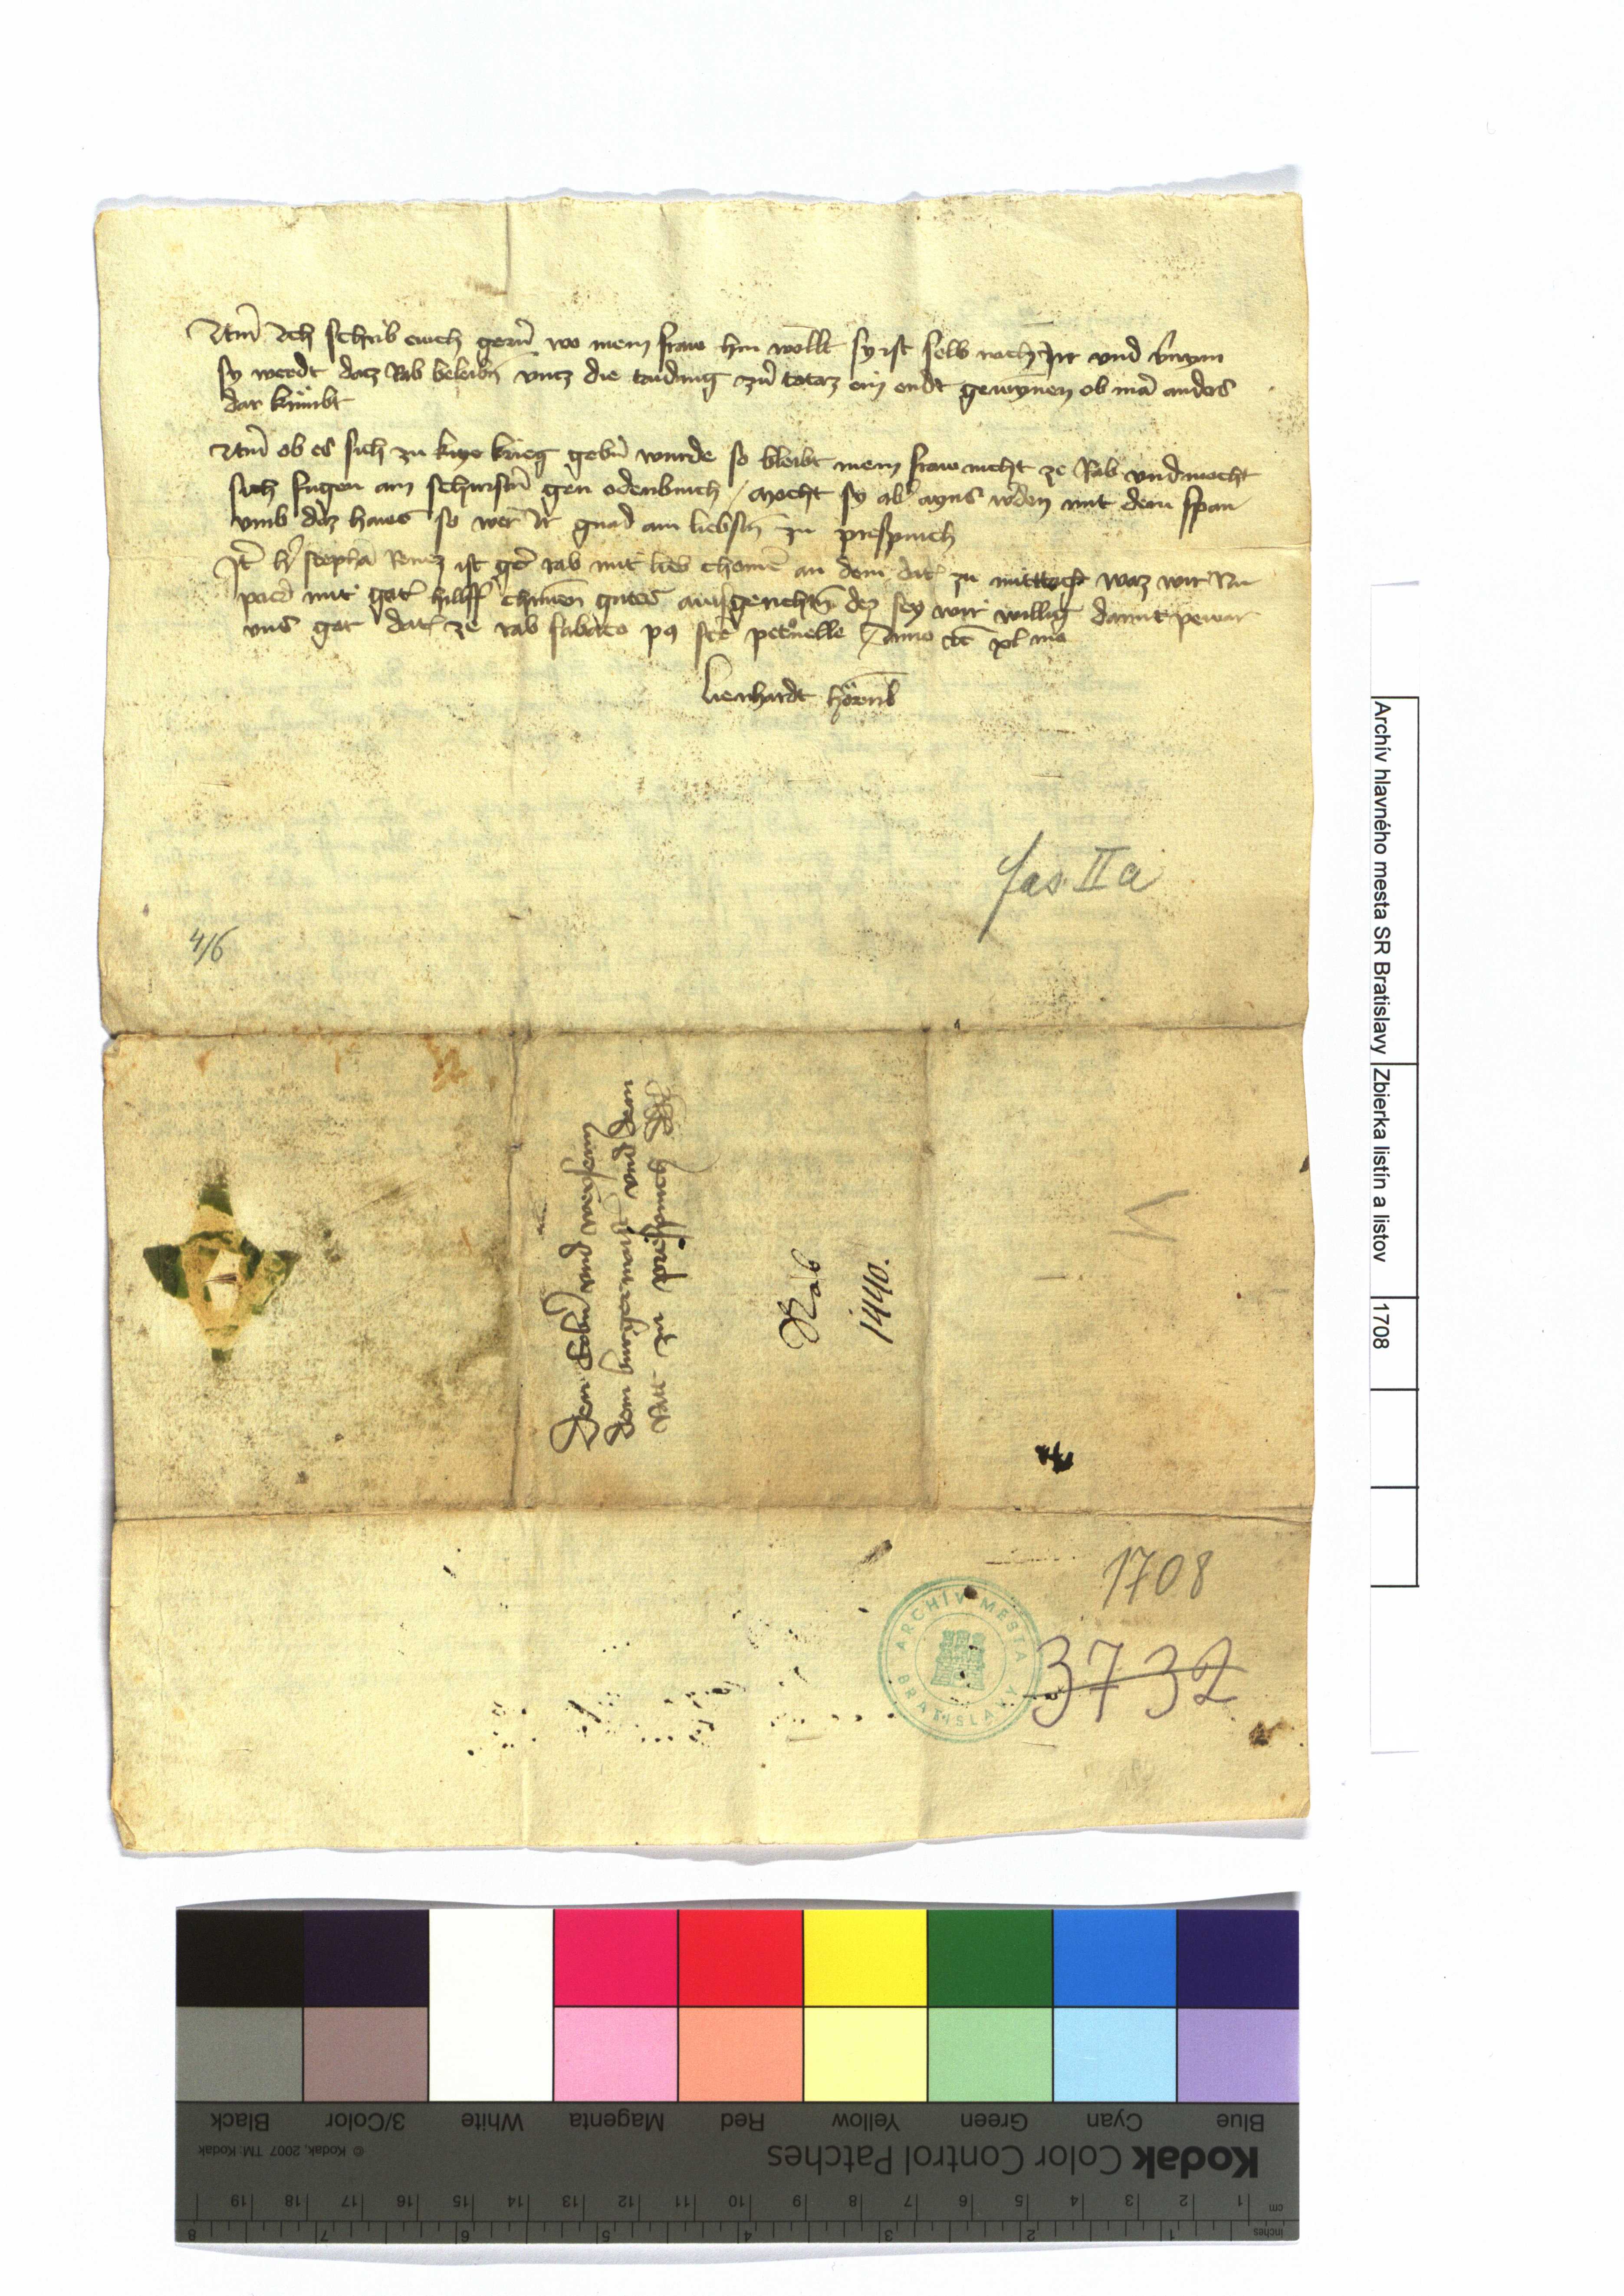 Itm̄ Ich schrib euch gern̄ wo mein fraw hin wollt sy ist selb noch Irr und
sy werdt dacz Rab beleibn̄ vncz die taiding zw̄ totaz ein endt gewynnen ob mā anders
dar kumbt
Itm̄ ob es sich zu krieg gebn̄ wurde so bleibt mein fraw nicht ze Rab und mocht
sich fugen am schirstn̄ gen odenburch / Mocht sy ab̄ ayns wˀden mit dem span
vmb daz haws so wer Ir gnad am liebstn̄ zu prespurch
It̄ hˀ stephā ist gen rab mit lieb chomē an dem dat zu mittog waz wir Nu
mit got hillff guets ausgerichtn̄ dez sey wir willig damit pewar
uns got dat ze rab sabato pꝯ scē petˀnelle Anno etc̄ xl mo
Lienhardt
fas. II a
4/6
Den Erbn̄ und weysen
dem burgermaistˀ und dem
Rat zu prespurch
Rab
1440.
1708
3732
ARCHÍV MESTA BRATISLAVY
Archív hlavného mesta SR Bratislavy
Zbierka listín a listov
1708
Blue Cyan Green Yellow Red Magenta White 3/Color Black
Kodak Color Control Patches
© Kodak, 2007 TM: Kodak
cm 1 2 3 4 5 6 7 8 9 10 11 12 13 14 15 16 17 18 19
inches 1 2 3 4 5 6 7 8